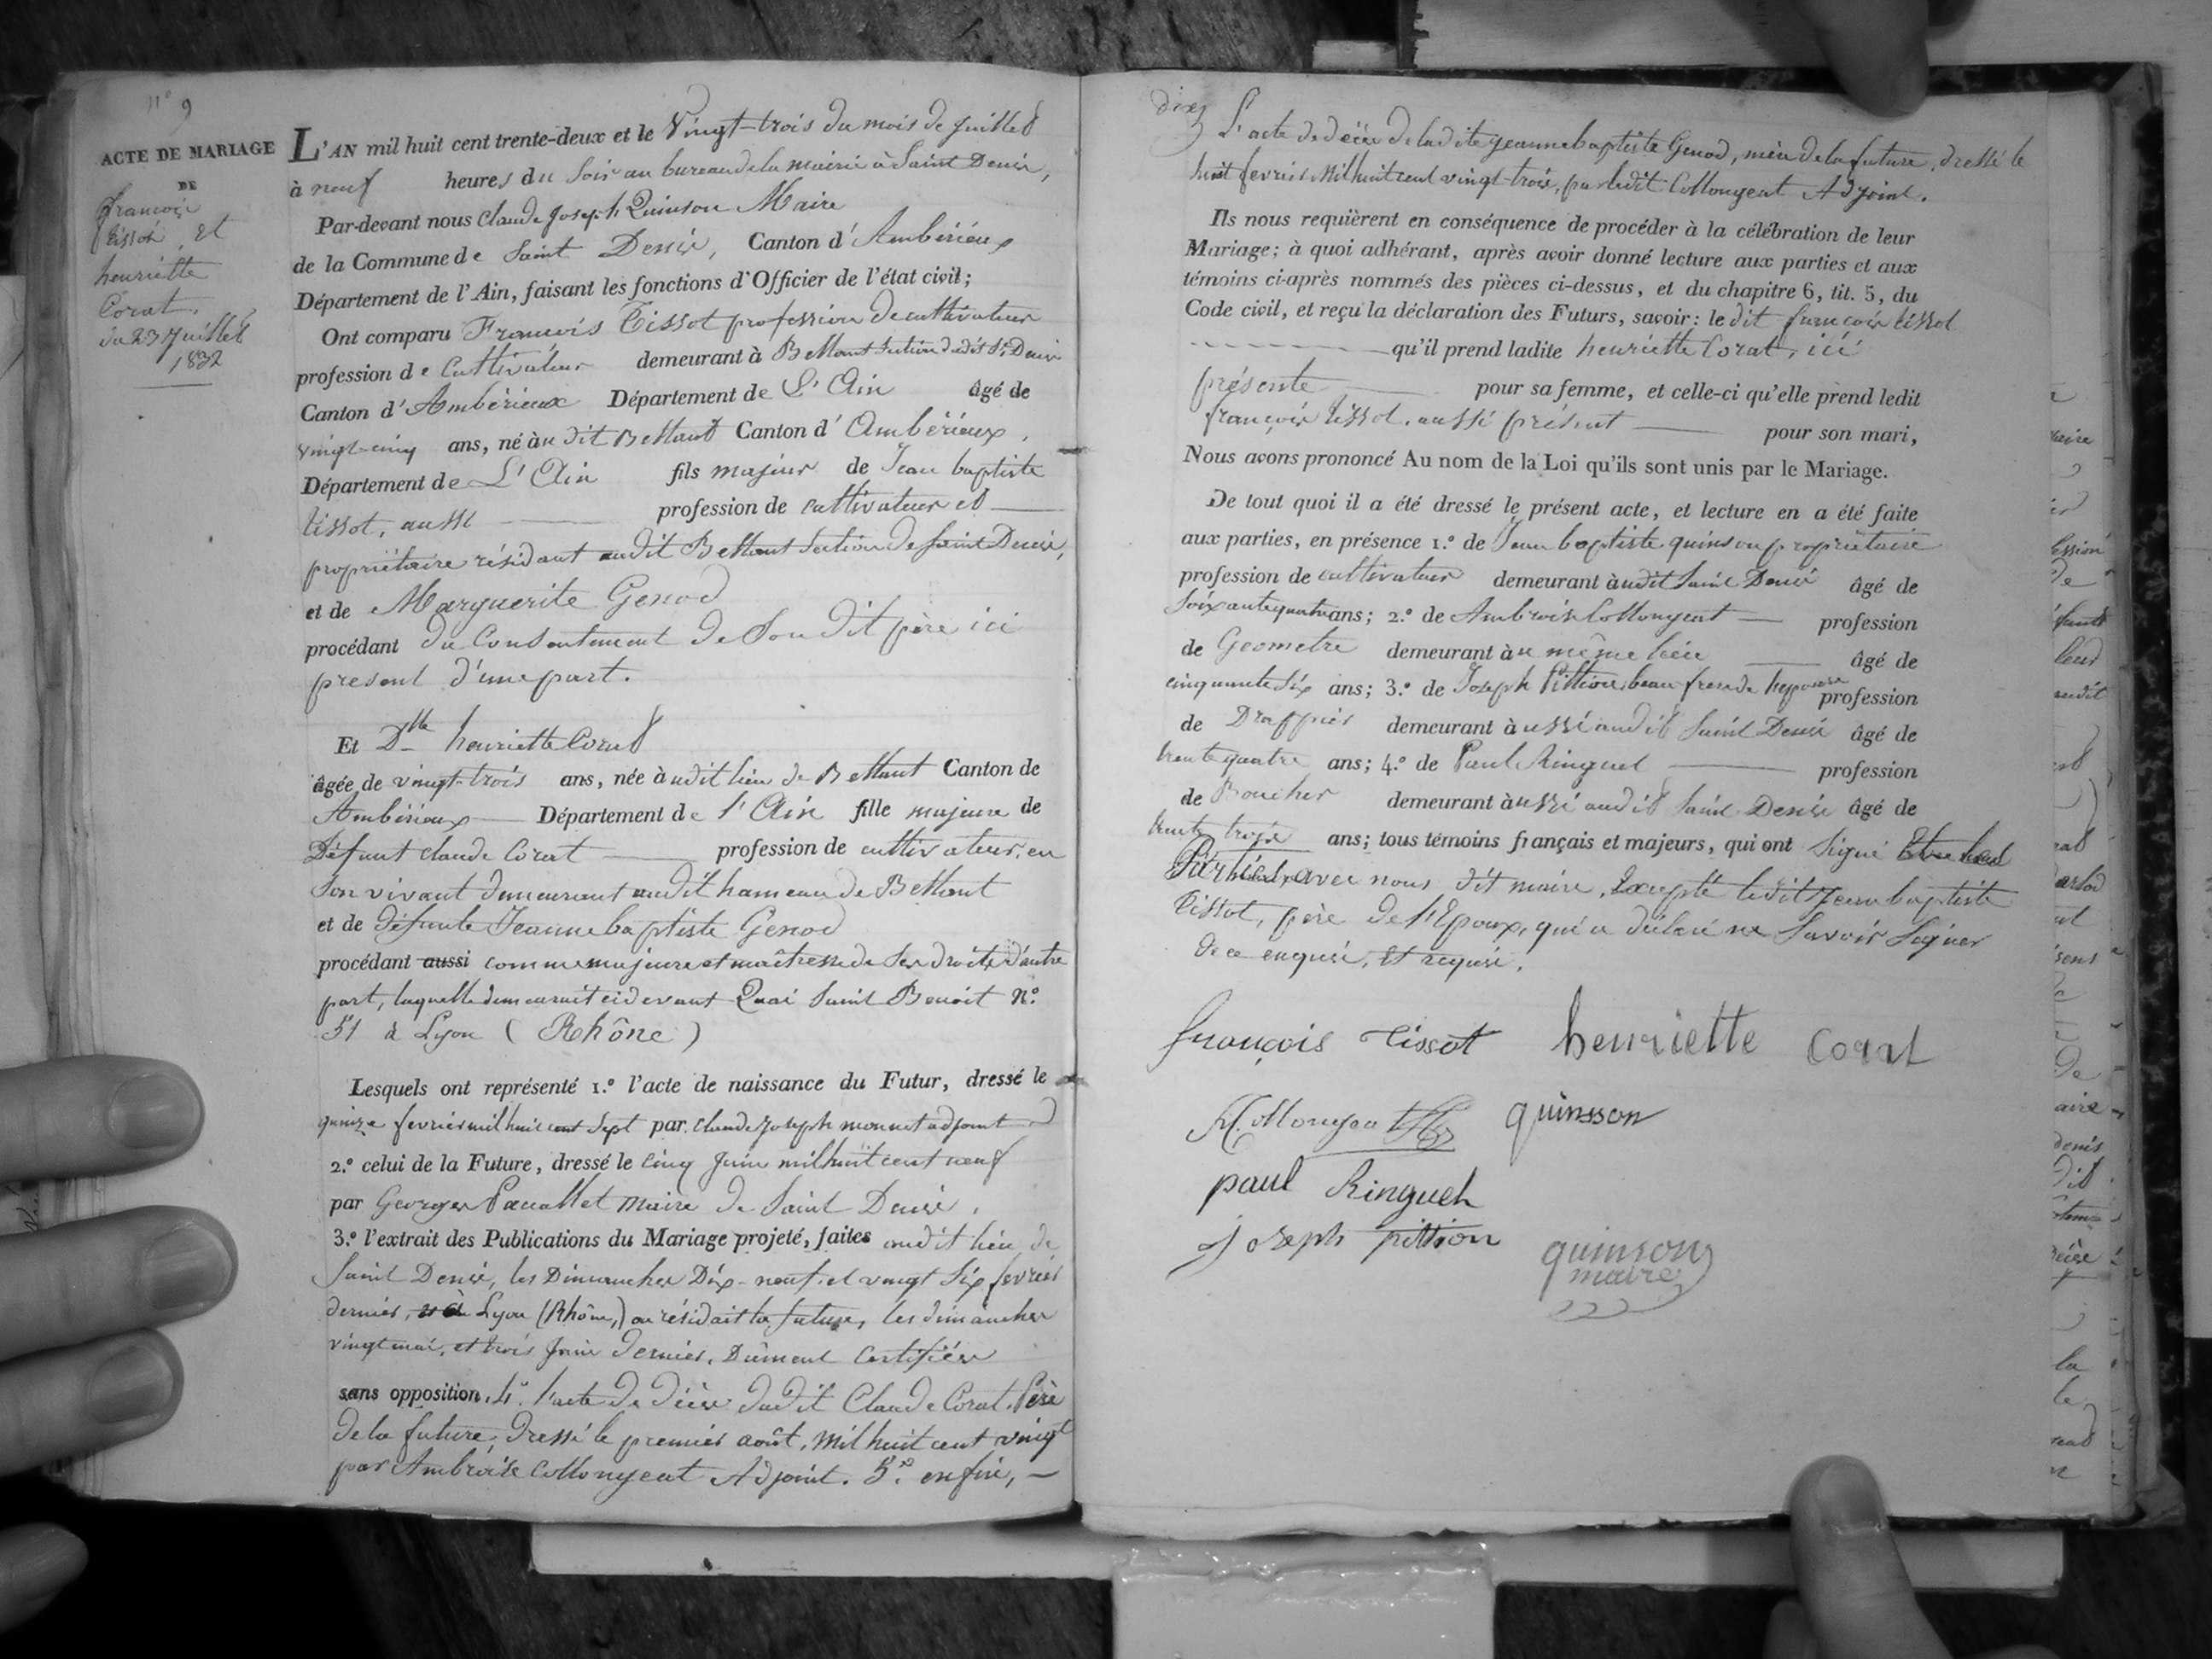 n.° 9
ACTE DE MARIAGE
DE
françois
tissot et
henriette
Corat.
du 23 Juillet
1832
L'AN mil huit cent trente-deux et le Vingt-trois du mois de juillet
à neuf heures du soir au bureau de la mairie à Saint Denis,
Par-devant nous Claude Joseph Quinson Maire
de la Commune de Saint Denis, Canton d'Ambérieux
Département de l'Ain, faisant les fonctions d'Officier de l'état civil;
Ont comparu François Tissot profession de cultivateur
profession de Cultivateur demeurant à Bettant Section dudit St. Denis
Canton d'Ambérieux Département de L'Ain âgé de
vingt-cinq ans, né à udit Bettant Canton d'Ambérieux,
Département de L'Ain fils majeur de Jean baptiste
tissot, aussi profession de cultivateur et
propriétaire résidant audit Bettant Section de Saint Denis,
et de Marguerite Genod
procédant du Consentement de Son dit père ici
présent d'une part.
Et Dlle henriette Corat
âgée de vingt-trois ans, née à udit lieu de Bettant Canton de
Ambérieux Département de l'Ain fille majeure de
Défunt Claude Corat profession de cultivateur, en
Son vivant demeurant audit hameau de Bettant
et de défunte Jeanne baptiste Genod
procédant aussi comme majeure et maîtresse de Ses droits d'autre
part, laquelle demeurait cidevant Quai Saint Benoit N.°
51 à Lyon (Rhône)
Lesquels ont représenté 1.° l'acte de naissance du Futur, dressé le
quinze fevrier mil huit cent Sept par Claude Joseph monnet adjoint
2.° celui de la Future, dressé le Cinq Juin mil huit cent neuf
par Georges Maire de Saint Denis,
3.° l'extrait des Publications du Mariage projeté, faites audit lieu de
Saint Denis, les Dimanches Dix-neuf et vingt Six fevrier
dernier, et à Lyon (Rhône,) ou résidait la future, les dimanches
vingt mai, et trois Juin dernier, Dûment Certifiées
sans opposition, 4.° l'acte de décès dudit Claude Corat, Père
de la future, Dressé le premier août, mil huit cent vingt
par Ambroise Collongeat Adjoint. 5.° enfin, —
dix
L'acte de décès de ladite jeanne baptiste Genod, mère de la future, dressé le
huit fevrier Mil huit cent vingt-trois, par ledit Collongeat Adjoint.
Ils nous requièrent en conséquence de procéder à la célébration de leur
Mariage; à quoi adhérant, après avoir donné lecture aux parties et aux
témoins ci-après nommés des pièces ci-dessus, et du chapitre 6, tit. 5, du
Code civil, et reçu la déclaration des Futurs, savoir: le dit françois tissot
qu'il prend ladite henriette Corat, ici
présente pour sa femme, et celle-ci qu'elle prend ledit
françois tissot, aussi présent pour son mari,
Nous avons prononcé Au nom de la Loi qu'ils sont unis par le Mariage.
De tout quoi il a été dressé le présent acte, et lecture en a été faite
aux parties, en présence 1.° de Jean baptiste quinson propriétaire
profession de cultivateur demeurant à udit Saint Denis âgé de
Soixante quatre ans; 2.° de Ambroise Collongeat profession
de Geometre demeurant à u même lieu âgé de
cinquante Six ans; 3.° de Joseph Pittion, beau frere de l'epouse profession
de Drappier demeurant à ussi audit Saint Denis âgé de
trente quatre ans; 4.° de Paul Ringuet profession
de Boucher demeurant à ussi audit Saint Denis âgé de
trente trois ans; tous témoins français et majeurs, qui ont Signé
avec nous dit maire, Excepté ledit Jean baptiste
Tissot, père de l'Epoux, qui a déclaré ne Savoir Signer
de ce enquis, et requis.
françois Tissot henriette Corat
A. Collongeat quinsson
paul Ringueh
Joseph pittion
quinson
maire